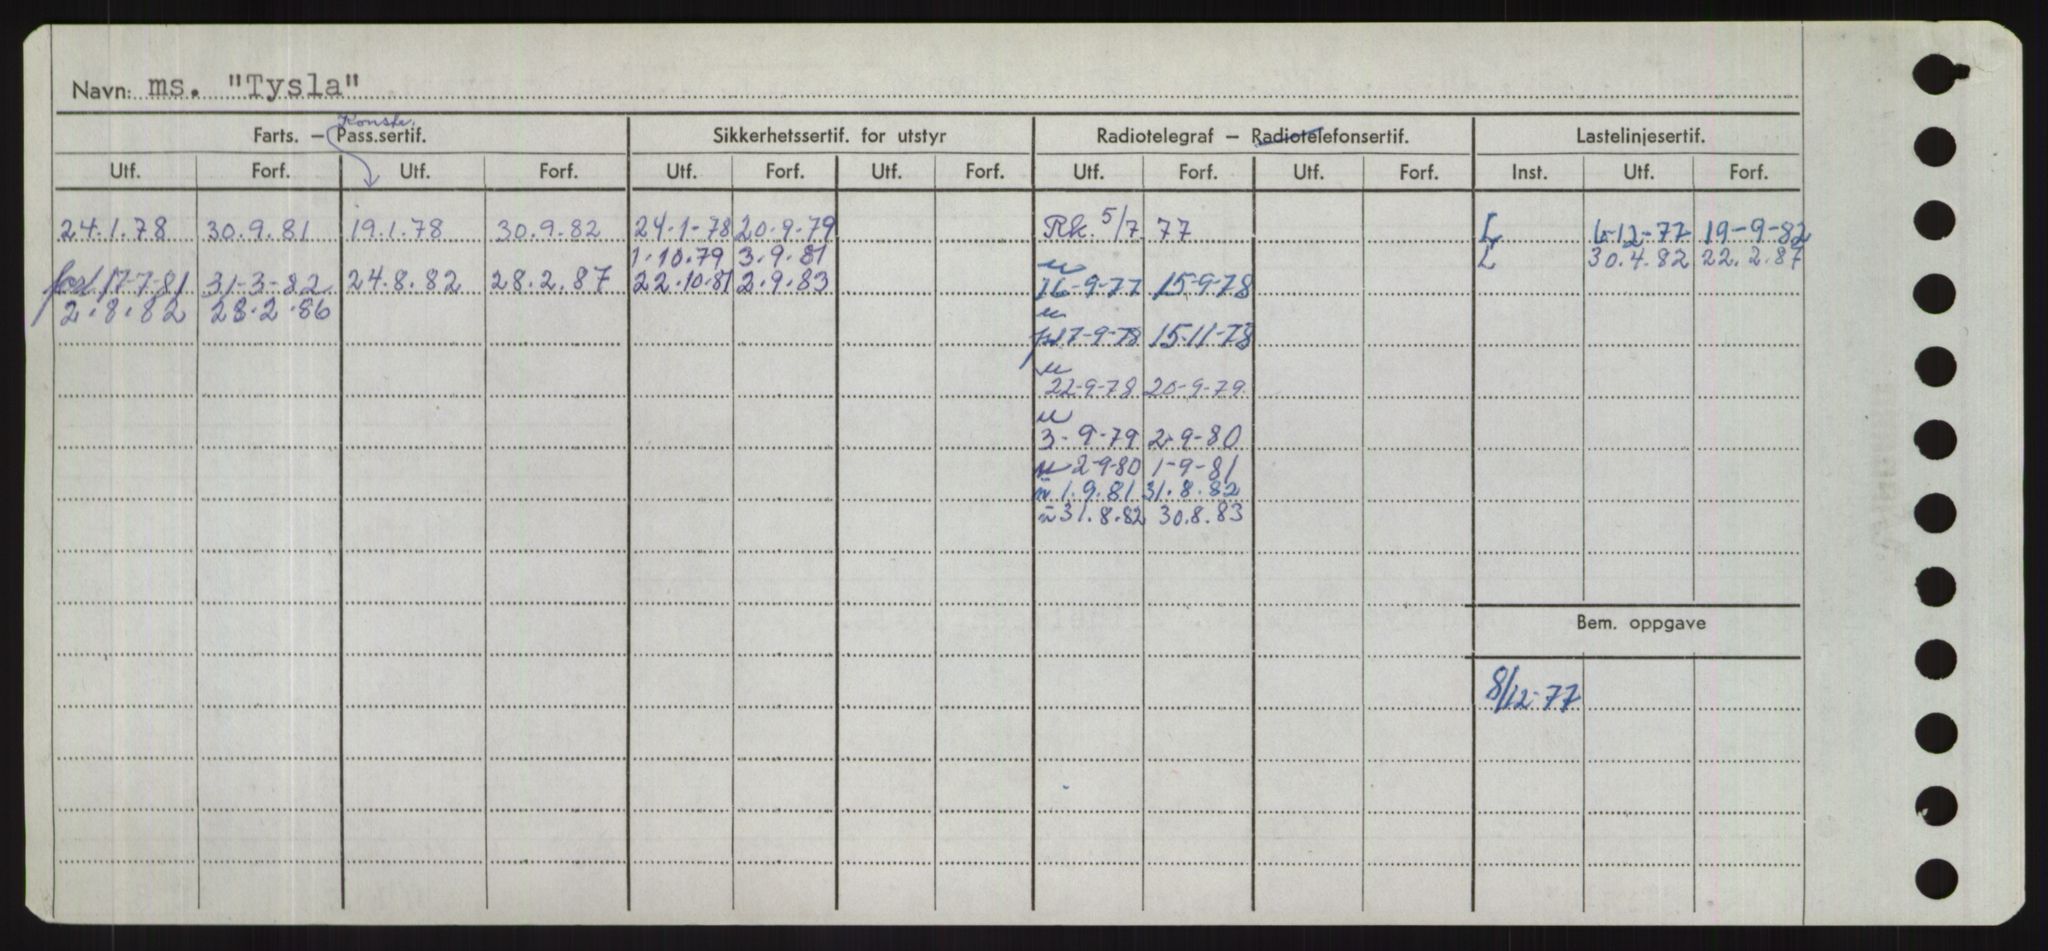 Navn: ms. "Tysla"
Konstr.
Farts. – Pass.sertif. Sikkerhetssertif. for utstyr Radiotelegraf – Radiotelefonsertif. Lastelinjesertif.
Utf. Forf. Utf. Forf. Utf. Forf. Utf. Forf. Utf. Forf. Utf. Forf. Inst. Utf. Forf.
24.1.78 30.9.81 19.1.78 30.9.82 24-1-78 20-9-79 Rk. 5/7 77 L 6-12-77 19-9-82
1.10.79 3.9.81 L 30.4.82 22.2.87
forl. 17-7-81 31-3-82 24.8.82 28.2.87 22.10.81 2.9.83 16-9-77 15-9-78
2.8.82 28.2.86
17-9-78 15-11-78
22-9-78 20-9-79
3-9-79 2-9-80
2-9-80 1-9-81
1.9.81 31.8.82
31.8.82 30.8.83
Bem. oppgave
8/12-77